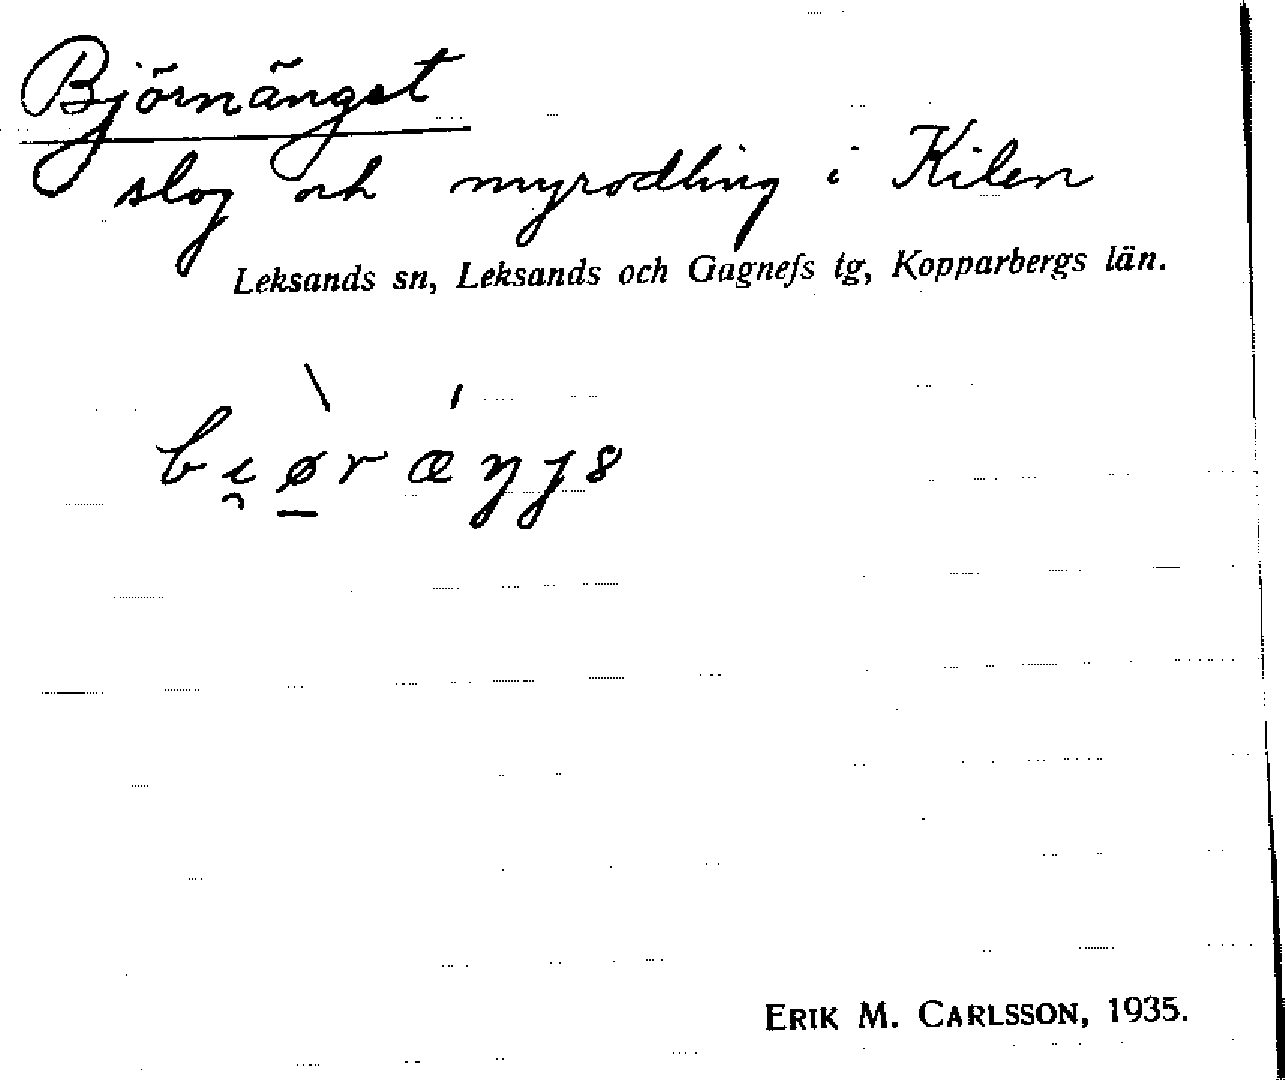 Björnänget
slog och myrodling i Kilen
Leksands sn, Leksands och Gagnefs tg, Kopparbergs län.
bi̯ø̱̀rǽŋɟs
ERIK M. CARLSSON, 1935.